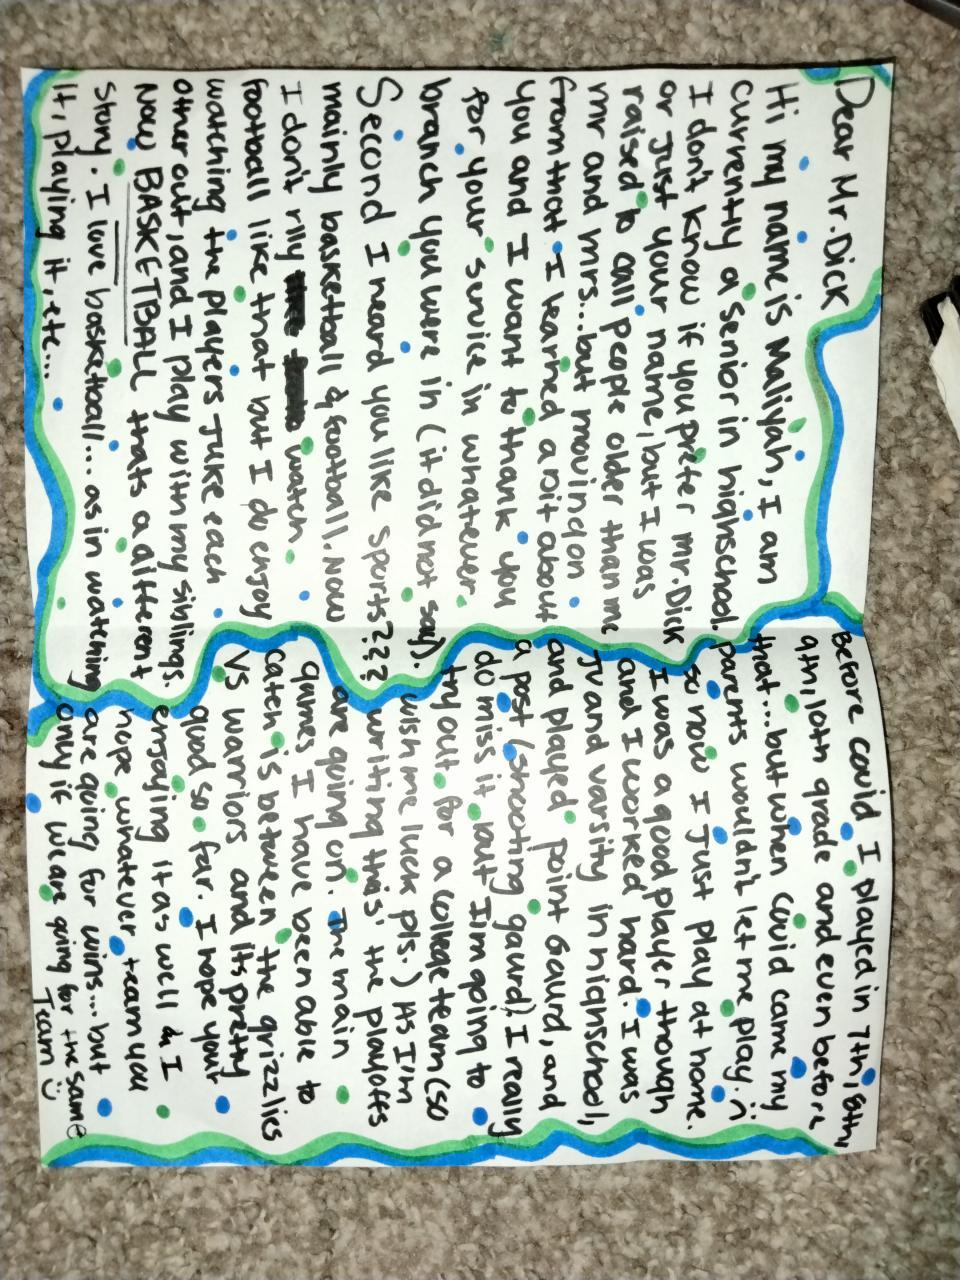 Dear Mr. Dick
Hi my name is Maliyah, I am
currently a senior in highschool.
I don't know if you prefer mr. Dick
or just your name, but I was
raised to call people older than me
mr and mrs... but moving on
from that I learned a bit about
you and I want to thank you
for your survice in whatever
branch you were in (it did not say).
Second I heard you like sports???
mainly basketball & football. Now
I don't rlly watch
football like that but I do enjoy
watching the players Juke each
other out, and I play with my siblings.
Now BASKETBALL thats a different
story. I love basketball... as in watching
it, playing it, etc...
Before covid I played in 7th, 8th,
9th, 10th grade and even before
that... but when covid came my
parents wouldn't let me play. :(
so now I just play at home.
I was a good player though
and I worked hard. I was
JV and varsity in highschool,
and played point gaurd, and
a post (shooting gaurd), I really
do miss it but I'm going to
try out for a college team (so
wish me luck pls.) As I'm
writing this the playoffs
are going on. The main
games I have been able to
catch is between the grizzlies
VS warriors and its pretty
good so far. I hope your
enjoying it as well & I
hope whatever team you
are going for wins... but
only if we are going for the same
Team :)